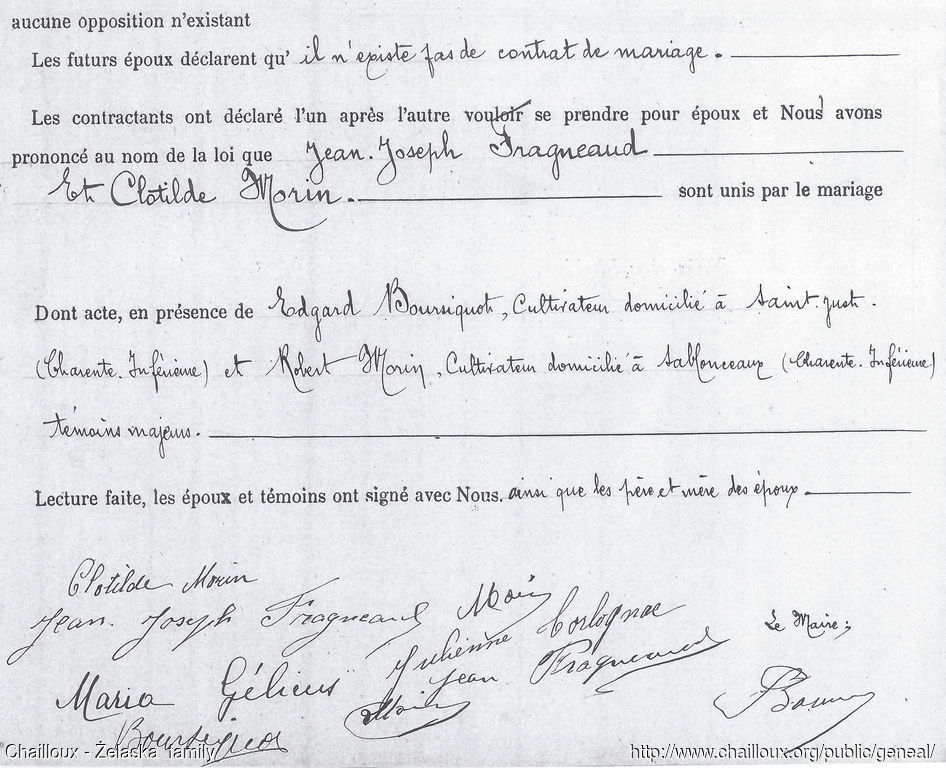 aucune opposition n'existant
Les futurs époux déclarent qu' il n'existe pas de contrat de mariage.
Les contractants ont déclaré l'un après l'autre vouloir se prendre pour époux et Nous avons
prononcé au nom de la loi que Jean-Joseph Fragneaud
Et Clotilde Morin. sont unis par le mariage
Dont acte, en présence de Edgard Boursiquot, Cultivateur domicilié à Saint-Just.
(Charente-Inférieure) et Robert Morin, Cultivateur domicilié à Sablonceaux (Charente-Inférieure)
témoins majeurs.
Lecture faite, les époux et témoins ont signé avec Nous. ainsi que les père et mère des époux.
Clotilde Morin
Jean Joseph Fragneaud Morin
Julienne
Le Maire:
Maria Gélieus Jean Fragneaud
Morin
Boursiquot
Chailloux - Želaska family
http://www.chailloux.org/public/geneal/